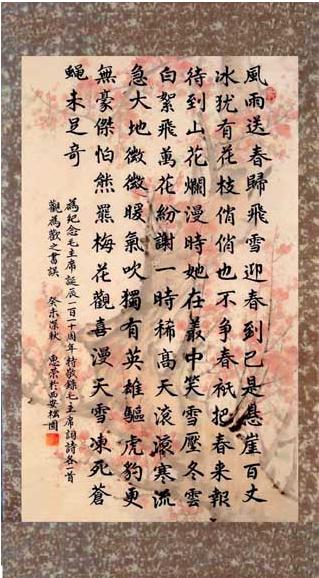 風雨送春歸飛雪迎春到已是懸崖百丈
冰犹有花枝俏俏也不争春祇把春来報
待到山花爛漫時她在叢中笑雪壓冬雲
白絮飛萬花紛謝一時稀高天滾滾寒流
急大地微微暖氣吹獨有英雄驅虎豹更
無豪傑怕熊羆梅花觀喜漫天雪凍死蒼
蠅未足奇
為紀念毛主席誕辰一百一十周年特敬錄毛主席詞詩各一首
觀為歡之書誤 癸未深秋 惠榮於西安松園